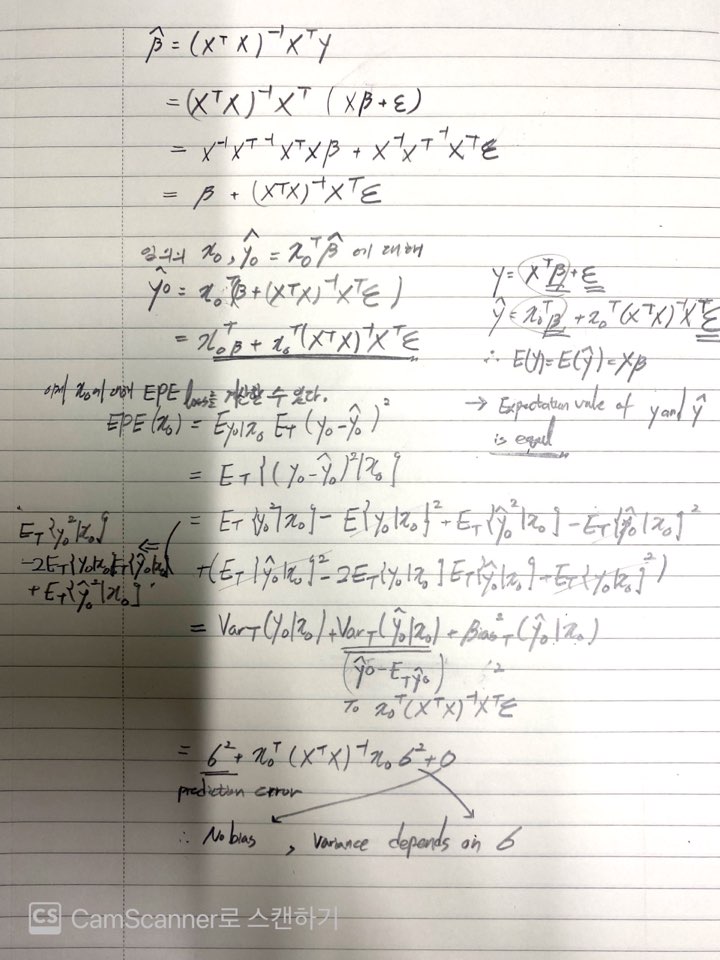 β̂ = (XᵀX)⁻¹XᵀY
= (XᵀX)⁻¹Xᵀ (Xβ+ε)
= X⁻¹Xᵀ⁻¹XᵀXβ + X⁻¹Xᵀ⁻¹Xᵀε
= β + (XᵀX)⁻¹Xᵀε
임의의 x₀, ŷ₀ = x₀ᵀβ̂ 에 대해
ŷ₀ = x₀ᵀ(β+(XᵀX)⁻¹Xᵀε)
= x₀ᵀβ + x₀ᵀ(XᵀX)⁻¹Xᵀε
y = Xᵀβ+ε
ŷ = x₀ᵀβ + x₀ᵀ(XᵀX)⁻¹Xᵀε
∴ E(y)=E(ŷ)=Xβ
→ Expectation value of y and ŷ
is equal
이제 x₀에 대해 EPE loss를 계산할 수 있다.
EPE(x₀) = E_y₀|x₀ E_T (y₀-ŷ₀)²
= E_T{(y₀-ŷ₀)²|x₀}
= E_T{y₀²|x₀} - E{y₀|x₀}² + E_T{ŷ₀²|x₀} - E_T{ŷ₀|x₀}²
+(E_T{ŷ₀|x₀}² - 2E_T{y₀|x₀}E_T{ŷ₀|x₀} + E_T{y₀|x₀}²)
E_T{y₀²|x₀}
-2E_T{y₀|x₀}E_T{ŷ₀|x₀} ⇐
+E_T{ŷ₀²|x₀}
= Var_T(y₀|x₀) + Var_T(ŷ₀|x₀) + Bias²_T(ŷ₀|x₀)
(ŷ₀-E_Tŷ₀)²
x₀ᵀ(XᵀX)⁻¹Xᵀε
= б² + x₀ᵀ(XᵀX)⁻¹x₀б² + 0
prediction error
∴ No bias, variance depends on б
CS CamScanner로 스캔하기